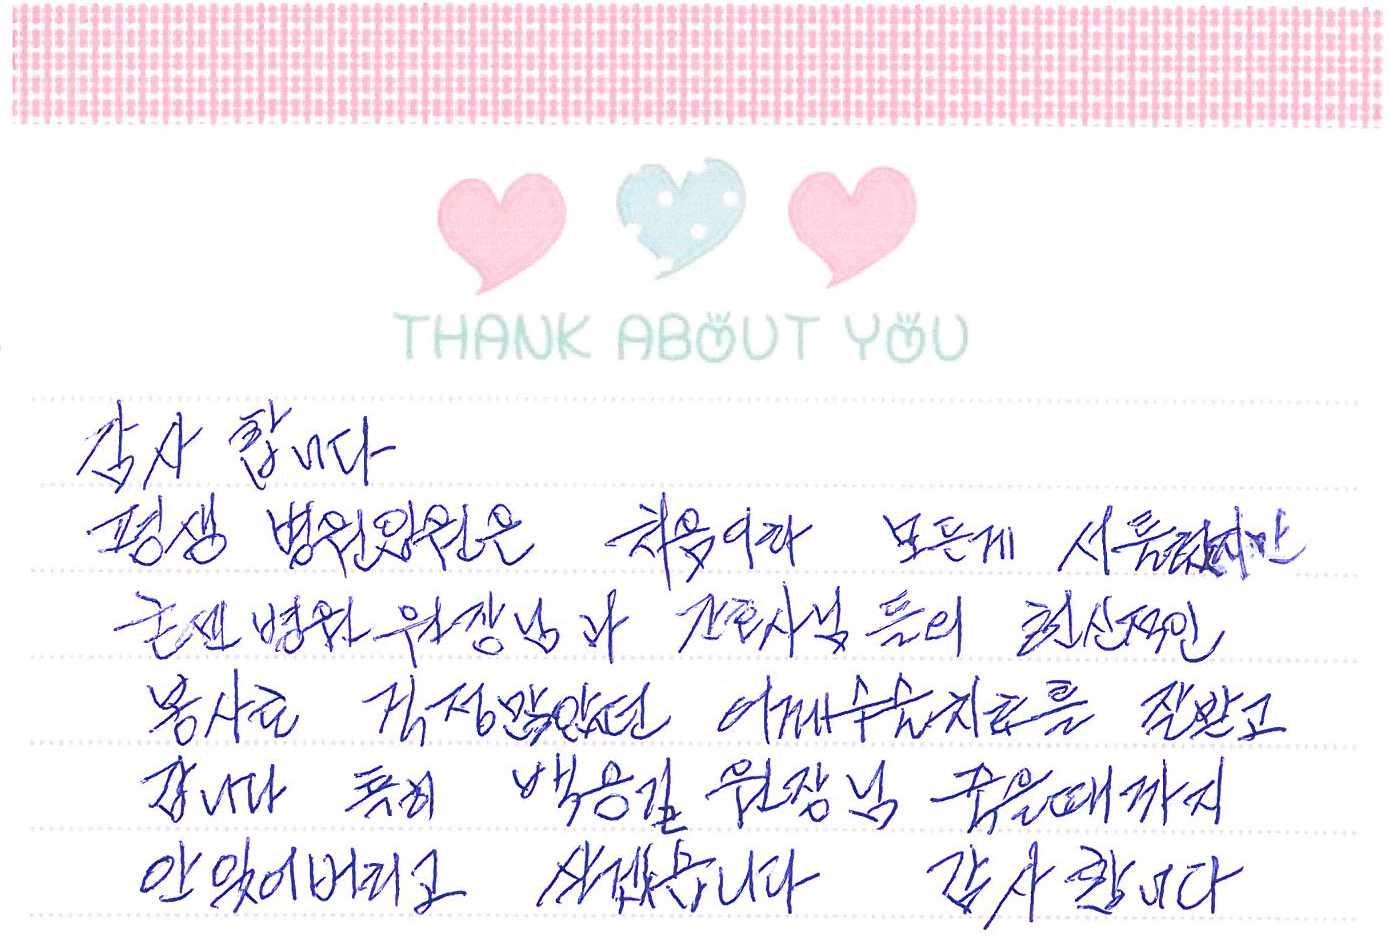 THANK ABOUT YOU
감사 합니다
평생 병원입원은 처음이라 모든게 서툴렀지만
굳센병원 원장님과 간호사님들의 헌신적인
봉사로 걱정많았던 어깨수술치료를 잘받고
갑니다 특히 백용길 원장님 죽을때까지
안잊어버리고 살겠습니다 감사합니다